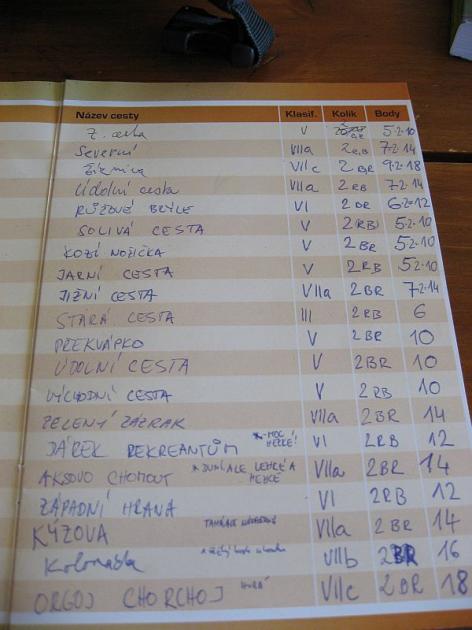 Název cesty Klasif. Kolik Body
Z. cesta V 2 BR 5·2·10
Severní VIIa 2 R.B 7·2·14
Žiznica VIIc 2 BR 9·2·18
Údolní cesta VIIa 2 RB 7·2·14
RŮŽOVÉ BRÝLE VI 2 BR 6·2=12
SOLIVÁ CESTA V 2 RB 5·2·10
KOZÍ NOŽIČKA V 2 BR 5·2·10
JARNÍ CESTA V 2 RB 5·2·10
JIŽNÍ CESTA VIIa 2 BR 7·2·14
STARÁ CESTA III 2 RB 6
PŘEKVÁPKO V 2 BR 10
ÚDOLNÍ CESTA V 2 BR 10
VÝCHODNÍ CESTA V 2 RB 10
ZELENÝ ZÁZRAK VIIa 2 BR 14
DÁREK REKREANTŮM *-MOC HEZKÉ! VI 2 RB 12
AKSOVO CHOMOUT LEHCE A HEZKÉ VIIa 2 BR 14
ZÁPADNÍ HRANA VI 2 RB 12
KÝZOVA VIIa 2 BR 14
Kolonáda VIIb 2 BR 16
ORGOJ CHORCHOJ HURÁ VIIc 2 BR 18